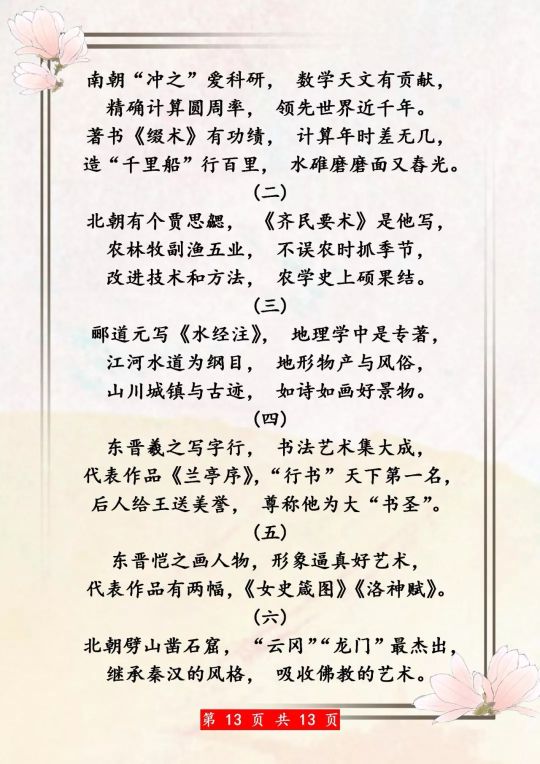 南朝“冲之”爱科研， 数学天文有贡献，
精确计算圆周率， 领先世界近千年。
著书《缀术》有功绩， 计算年时差无几，
造“千里船”行百里， 水碓磨磨面又舂光。
（二）
北朝有个贾思勰， 《齐民要术》是他写，
农林牧副渔五业， 不误农时抓季节，
改进技术和方法， 农学史上硕果结。
（三）
郦道元写《水经注》， 地理学中是专著，
江河水道为纲目， 地形物产与风俗，
山川城镇与古迹， 如诗如画好景物。
（四）
东晋羲之写字行， 书法艺术集大成，
代表作品《兰亭序》，“行书”天下第一名，
后人给王送美誉， 尊称他为大“书圣”。
（五）
东晋恺之画人物，形象逼真好艺术，
代表作品有两幅，《女史箴图》《洛神赋》。
（六）
北朝劈山凿石窟， “云冈”“龙门”最杰出，
继承秦汉的风格， 吸收佛教的艺术。
第 13 页 共 13 页